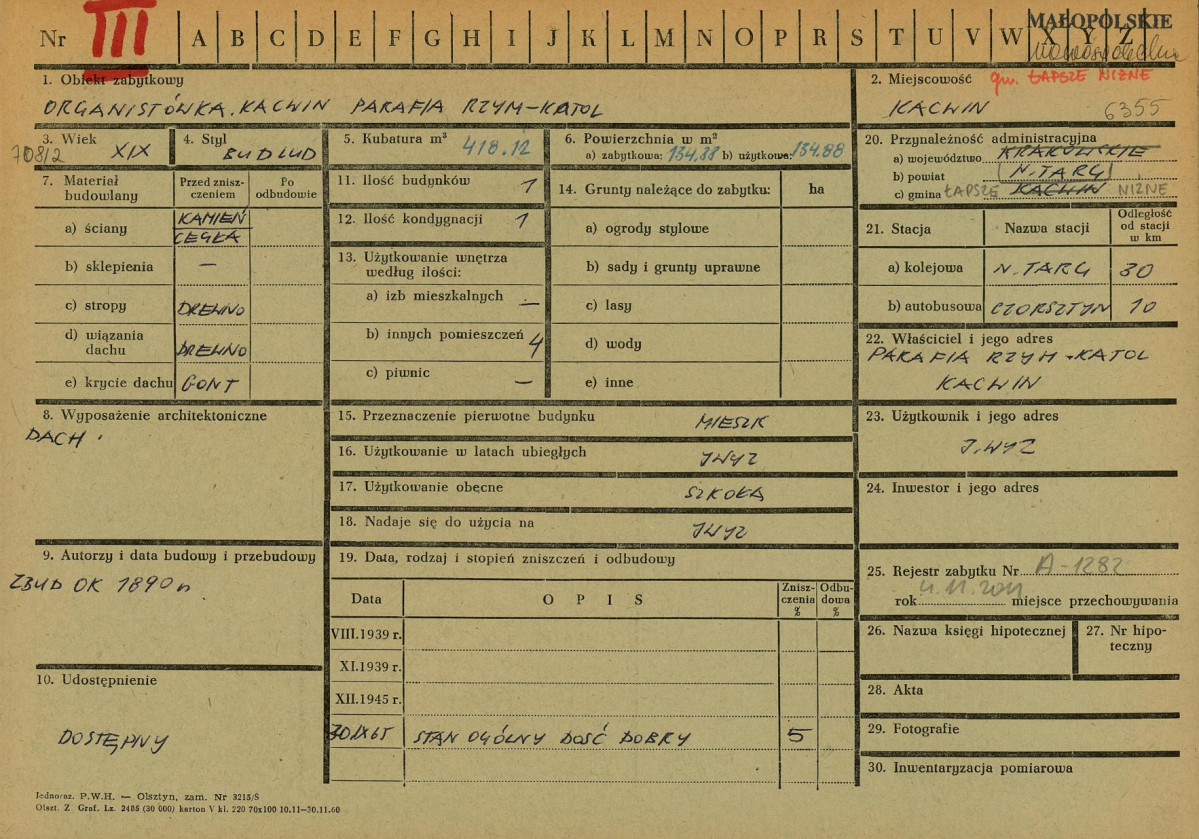 Nr III A B C D E F G H I J K L M N O P R S T U V W X Y Z
MAŁOPOLSKIE
1. Obiekt zabytkowy
ORGANISTÓWKA. KACWIN PARAFIA RZYM-KATOL
2. Miejscowość gm. ŁAPSZE NIŻNE
KACWIN 6355
3. Wiek
XIX
4. Styl
BUD LUD
5. Kubatura m³ 418.12
6. Powierzchnia w m²
a) zabytkowa: 134,88 b) użytkowa: 134.88
20. Przynależność administracyjna
a) województwo KRAKOWSKIE
b) powiat N. TARG
c) gmina ŁAPSZE KACWIN NIŻNE
7. Materiał budowlany
Przed zniszczeniem
Po odbudowie
a) ściany KAMIEŃ
CEGŁA
b) sklepienia —
c) stropy DREWNO
d) wiązania dachu DREWNO
e) krycie dachu GONT
11. Ilość budynków 1
12. Ilość kondygnacji 1
13. Użytkowanie wnętrza
według ilości:
a) izb mieszkalnych —
b) innych pomieszczeń 4
c) piwnic —
14. Grunty należące do zabytku: ha
a) ogrody stylowe
b) sady i grunty uprawne
c) lasy
d) wody
e) inne
21. Stacja
Nazwa stacji
Odległość
od stacji
w km
a) kolejowa N. TARG 30
b) autobusowa CZORSZTYN 10
22. Właściciel i jego adres
PARAFIA RZYM-KATOL
KACWIN
8. Wyposażenie architektoniczne
DACH.
15. Przeznaczenie pierwotne budynku MIESZK
16. Użytkowanie w latach ubiegłych J.WYŻ
17. Użytkowanie obecne SZKOŁA
18. Nadaje się do użycia na J.WYŻ
23. Użytkownik i jego adres
J.WYŻ
24. Inwestor i jego adres
9. Autorzy i data budowy i przebudowy
ZBUD OK 1890 r.
19. Data, rodzaj i stopień zniszczeń i odbudowy
Data
O P I S
Zniszczenia
%
Odbudowa
%
VIII.1939 r.
XI.1939 r.
XII.1945 r.
30 IX 65 STAN OGÓLNY DOŚĆ DOBRY 5
25. Rejestr zabytku Nr A-1282
rok 4.11.2011 miejsce przechowywania
26. Nazwa księgi hipotecznej
27. Nr hipoteczny
28. Akta
29. Fotografie
30. Inwentaryzacja pomiarowa
10. Udostępnienie
DOSTĘPNY
Jednoraz. P.W.H. — Olsztyn, zam. Nr 3215/S
Olszt. Z Graf. Lz. 2485 (30 000) karton V kl. 220 70x100 10.11—30.11.60